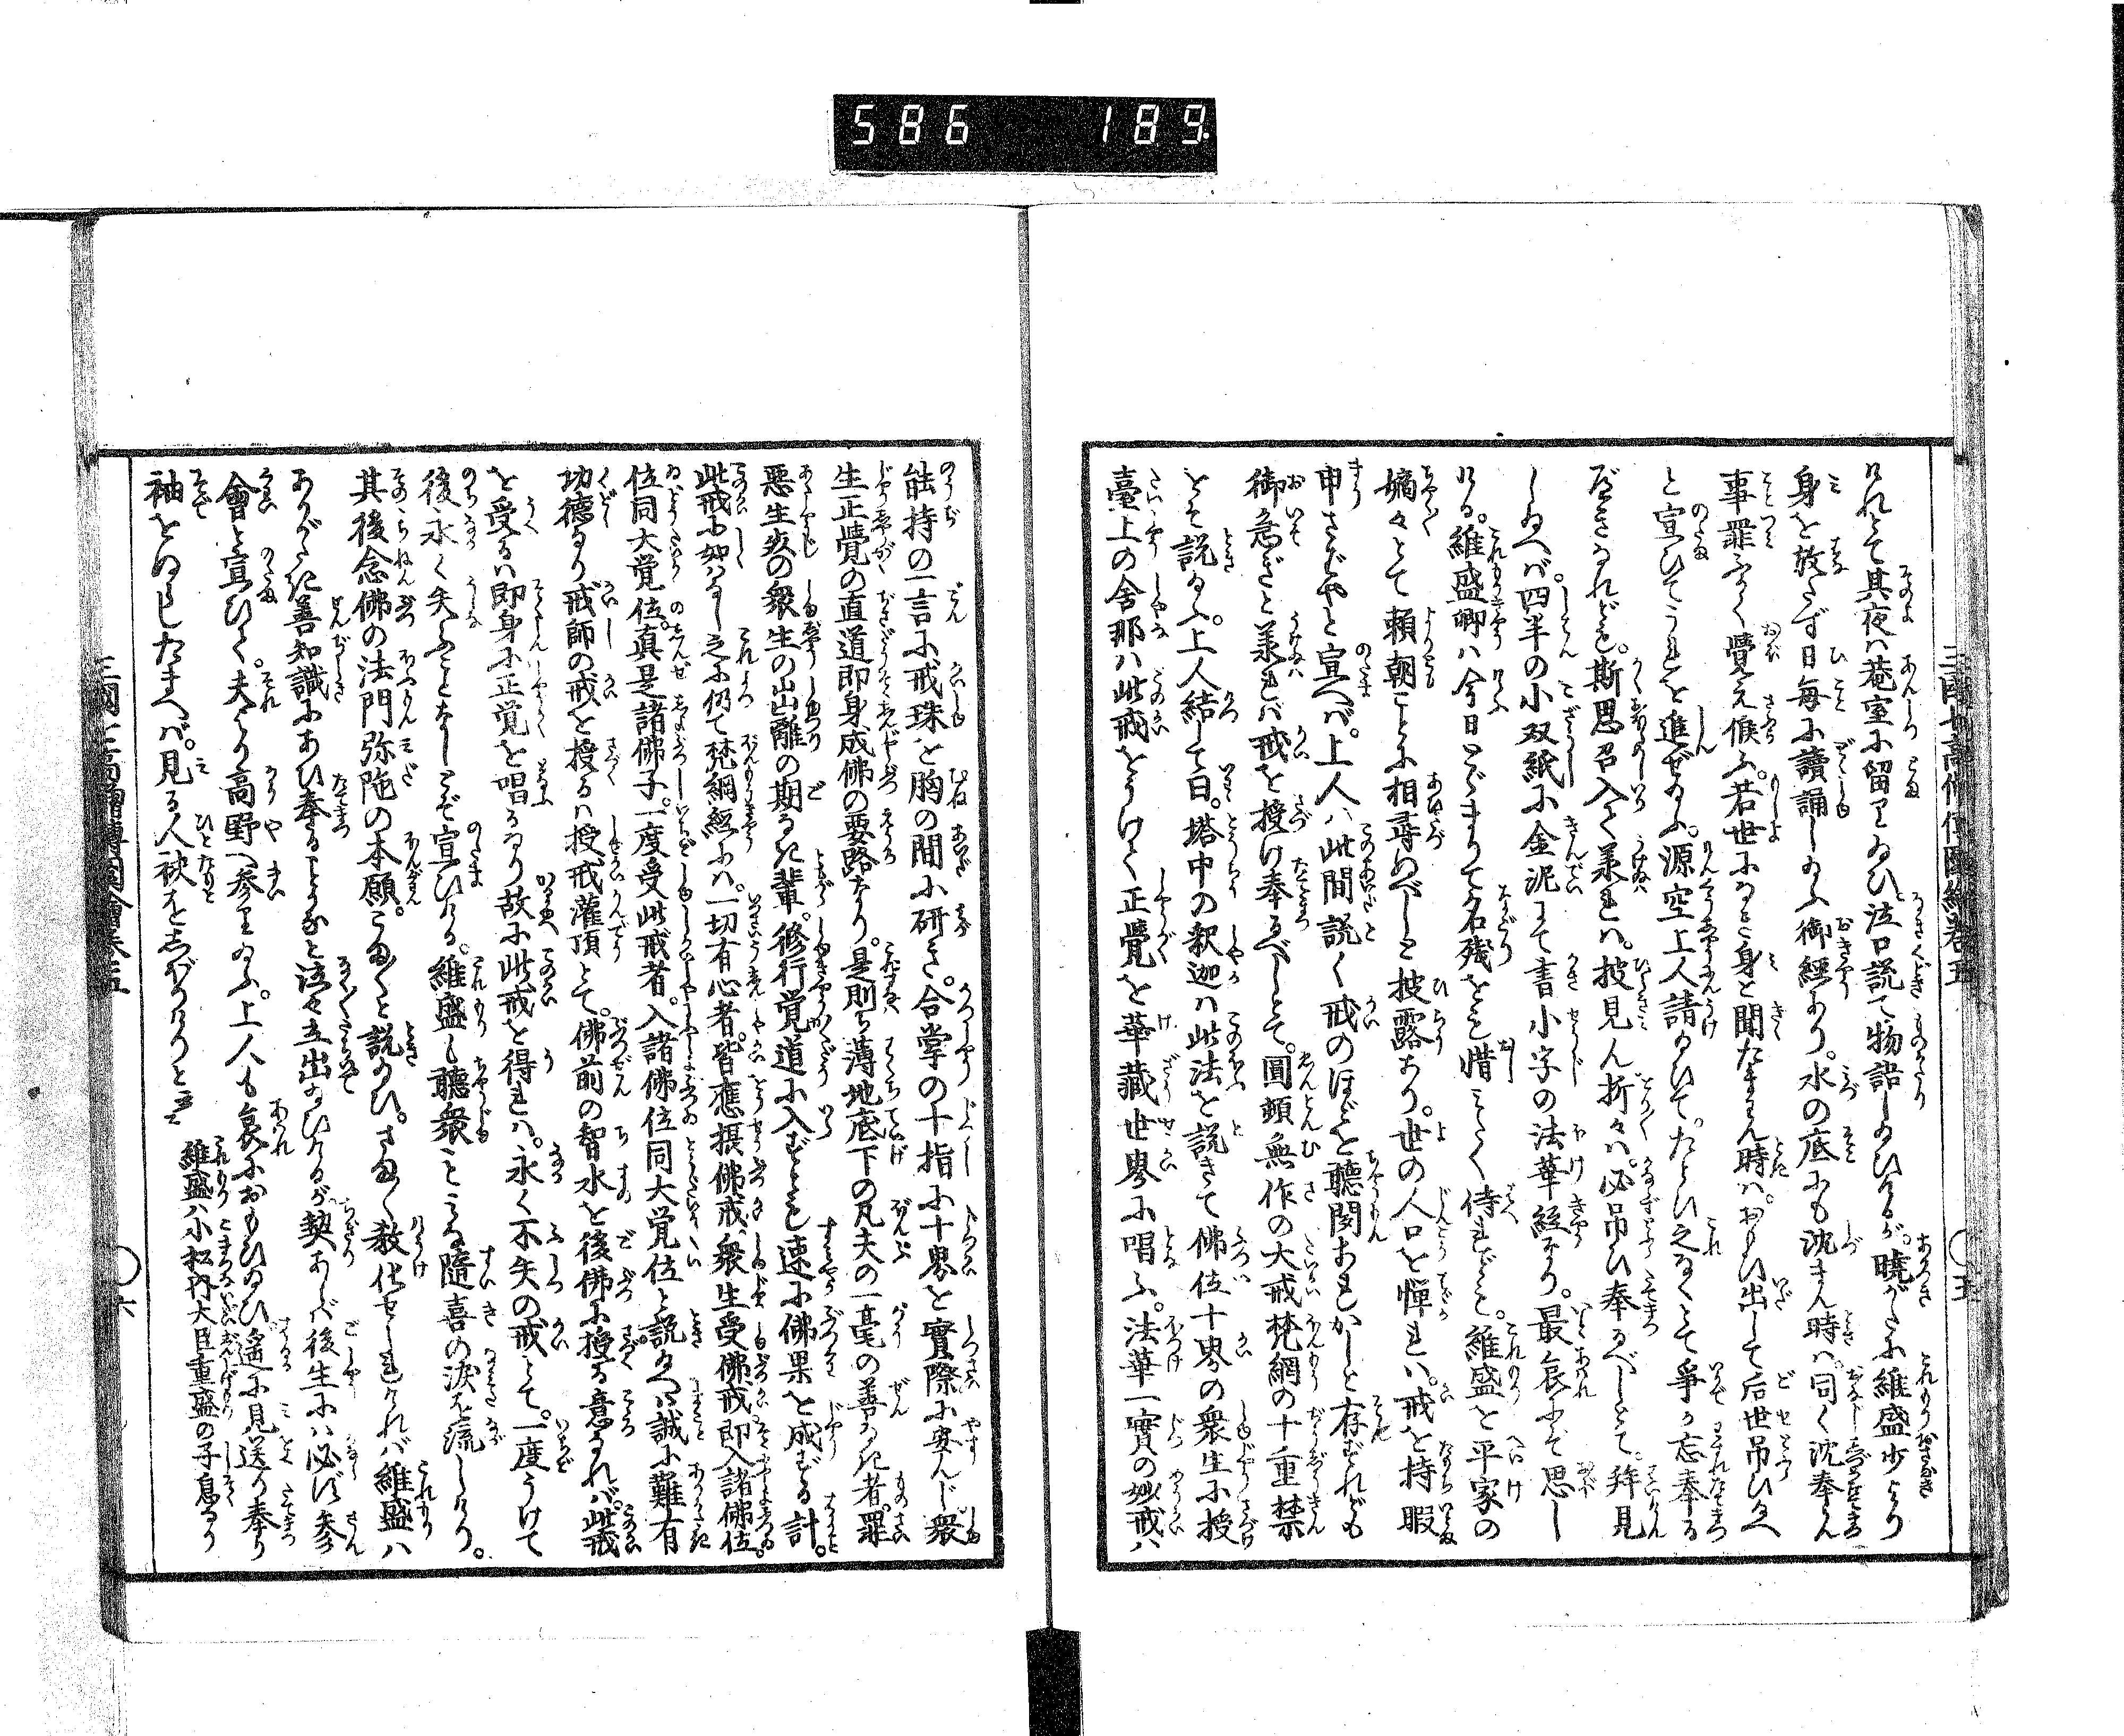 586 189
三國七高僧傳圖繪卷五 〇五
けれとて其夜ハ菴室に留りゐひ泣口説て物語しゐひけるが。曉がたに維盛少より
身を放たず日毎に讀誦しゐふ御經あり。水の底にも沈まん時ハ。同く沈奉らん
事罪ふかく覺え候ふ。若世になき身と聞たまはん時ハ。おもひ出して后世吊ひ給へ
と宣ひてうれを進ぜゐふ。源空上人請給ひて。たとひ之なくとて爭か忘奉る
べきなれども。斯思召入て承れハ。披見ん折々ハ。必吊ひ奉るべしとて。拜見
しゐへバ。四半の小双紙に金泥にて書小字の法華經なり。最哀にぞ思し
ける。維盛卿ハ今日とゞまりて名残をも惜みたく侍れども。維盛を平家の
嫡々とて頼朝ことに相尋ぬべしと披露あり。世の人口を憚れハ。戒を持暇
申さばやと宣へバ。上人ハ此間説く戒のほどを聽聞あれかしと存ずれども
御急ぎと承れバ戒を授け奉るべしとて。圓頓無作の大戒梵網の十重禁
をぞ説ゐふ。上人結して曰。塔中の釈迦ハ此法を説きて佛位十界の衆生に授
臺上の舍那ハ此戒をうけて正覺を華藏世界に唱ふ。法華一實の妙戒ハ
能持の一言に戒珠を胸の間に研き。合掌の十指に十界を實際に安んじ衆
生正覺の直道即身成佛の要路なり。是則ち薄地底下の凡夫の一毫の善なき者。罪
惡生死の衆生の出離の期なき輩。修行覚道に入ずとも速に佛果を成ずる計。
此戒に如ハなし之に仍て梵網經にハ。一切有心者。皆應摂佛戒、衆生受佛戒即入諸佛位。
位同大覚位。真是諸佛子。一度受此戒者。入諸佛位同大覚位と説給へハ誠に難有
功德なり戒師の戒を授るハ授戒灌頂とて。佛前の智水を後佛に授る意なれバ。此戒
を受るハ即身に正覚を唱るなり故に此戒を得れハ。永く不失の戒とて。一度うけて
後永く失ふことなしとぞ宣ひける。維盛も聽衆もみな隨喜の涙を流しけり。
其後念佛の法門弥陁の本願。こまごまと説給ひ。さまざま教化せられけれバ維盛ハ
ありがたき善知識にあひ奉ることかなと泣々立出給ひけるが。契あらバ後生にハ必ず参
會と宣ひて。夫より高野へ参りゐふ。上人も哀におもひゐひ遥に見送り奉り
袖をぬらしたまへバ。見る人袂をしぼりけりと云云
維盛ハ小松内大臣重盛の子息なり
三國七高僧傳圖會卷五 〇六